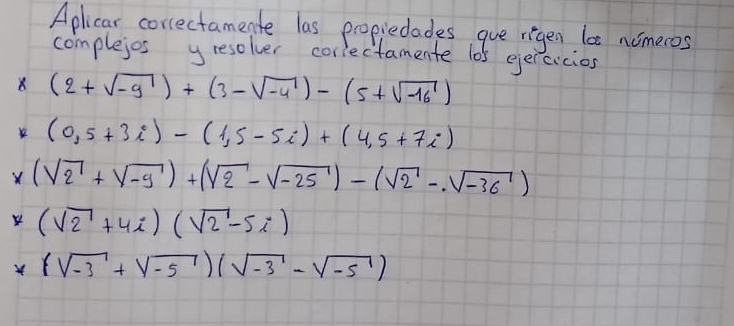 Aplicar correctamente las propiedades que rigen los números
complejos y resolver correctamente los ejercicios
* (2 + √-9) + (3 - √-4) - (5 + √-16)
* (0,5 + 3i) - (1,5 - 5i) + (4,5 + 7i)
* (√2 + √-9) + (√2 - √-25) - (√2 - √-36)
* (√2 + 4i) (√2 - 5i)
* (√-3 + √-5) (√-3 - √-5)